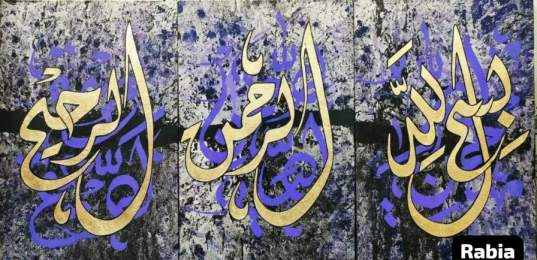 بسم الله
الرحمن
الرحيم
Rabia